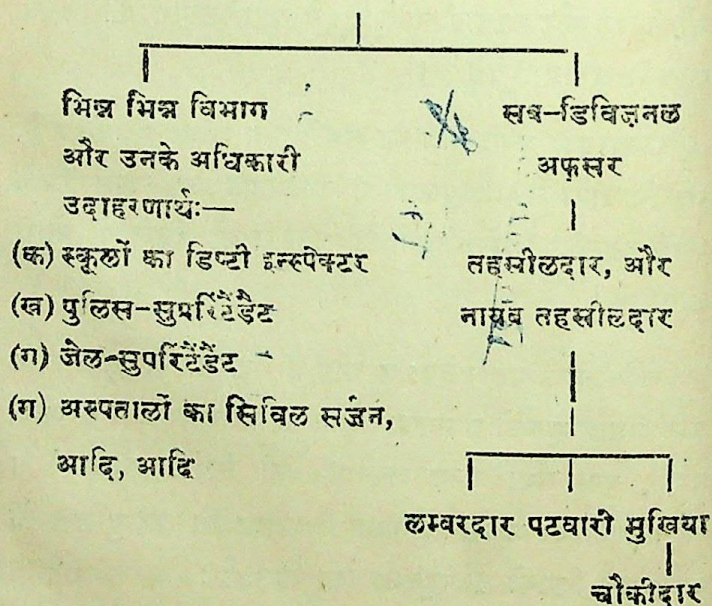 भिन्न भिन्न विभाग
और उनके अधिकारी
उदाहरणार्थः—
(क) स्कूलों का डिप्टी इन्स्पेक्टर
(ख) पुलिस-सुपरिंटेंडेंट
(ग) जेल-सुपरिंटेंडेंट
(ग) अस्पतालों का सिविल सर्जन,
आदि, आदि
सब-डिविज़नल
अफ़सर
तहसीलदार, और
नायब तहसीलदार
लम्बरदार पटवारी मुखिया
चौकीदार